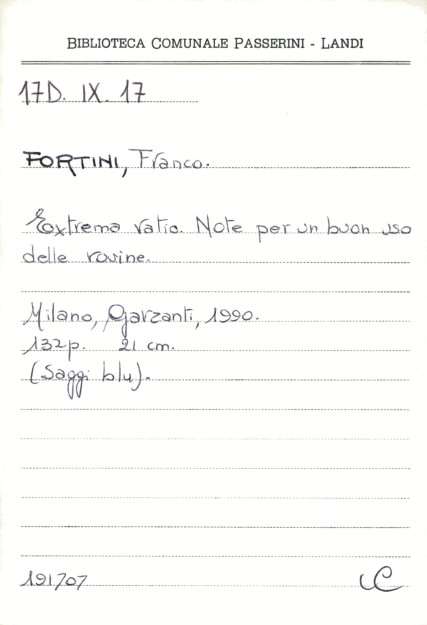 BIBLIOTECA COMUNALE PASSERINI - LANDI
17D. IX. 17
FORTINI, Franco.
Extrema ratio. Note per un buon uso
delle rovine.
Milano, Garzanti, 1990.
132p. 21 cm.
(Saggi blu).
191707